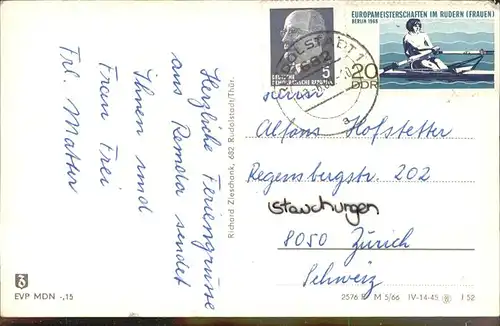 Herzliche Feriengrüsse
aus Remda sendet
Ihnen und
Frau Frei
Frl. Matter
Richard Zieschank, 682 Rudolstadt/Thür.
DEUTSCHE
DEMOKRATISCHE REPUBLIK
5
EUROPAMEISTERSCHAFTEN IM RUDERN (FRAUEN)
BERLIN 1968
20
DDR
682
a
Alfons Hofstetter
Regensbergstr. 202
8050 Zürich
Schweiz
EVP MDN -,15
M 5/66 IV-14-45 I 52